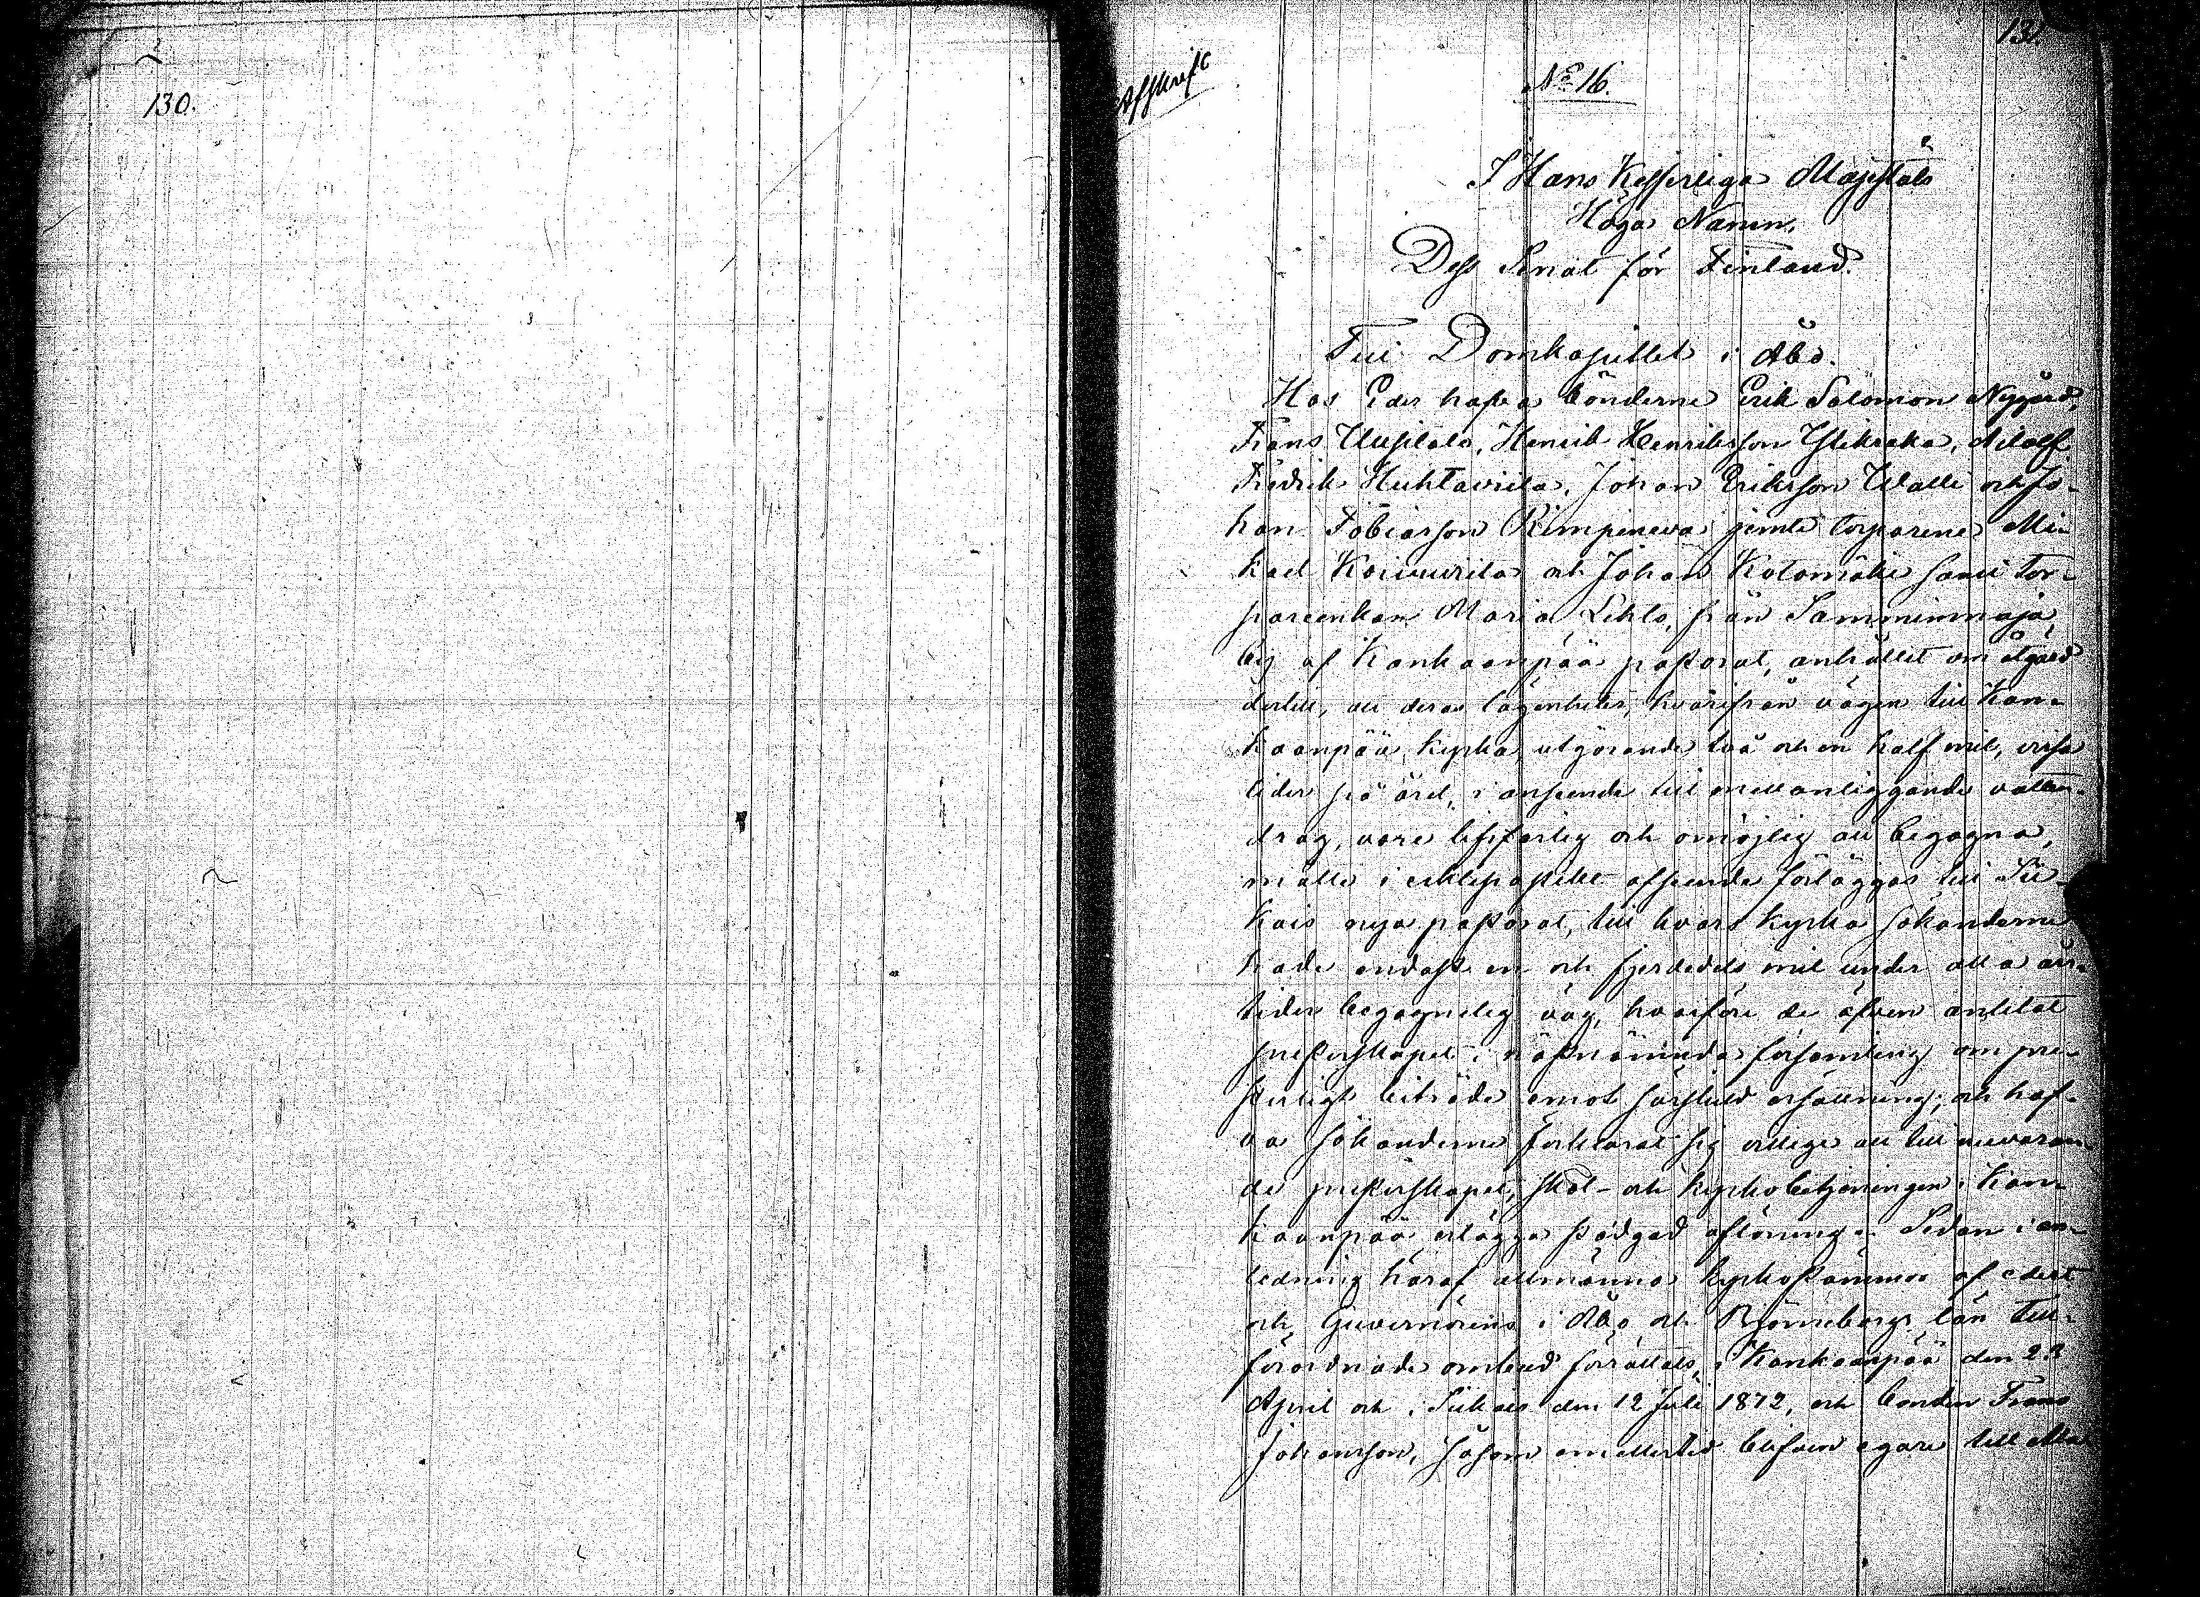 130.
131.
Afskrift
No 16.
I Hans Kejserliga Majestäts
Höga Namn,
Dess Senat för Finland.
Till Domkapitlet i Åbo.
Hos Eder hafva bönderne Erik Salomon Nygård,
Frans Uusitalo, Henrik Henriksson Adolf
Fredrik Huhtaviita, Johan Eriksson Walli och Jo-
han Tobiasson Rimpineva jemte torparene Mi-
kael Koivuviita och Johan Kolomäki samt tor-
pareenkan Maria Lehto, från Samminmaja
by af Kankaanpää pastorat, anhållit om åtgärd
dertill, att deras lägenheter, hvarifrån vägen till Kan-
kaanpää kyrka, utgörande två och en half mil, vissa
tider på året, i anseende till mellanliggande vatten-
drag, vore lifsfarlig och omöjlig att begagna,
måtte i eklesiastikt afseende förläggas till Sii-
kais nya pastorat, till hvars kyrka sökanderne
hade endast en och fjerdedels mil under alla års-
tider begagnelig väg, hvarföre de äfven anlitat
presterskapet i nästnämnda församling om pre-
sterligt biträde emot särskild ersättning; och haf-
va sökanderne förklarat sig villige att till nuvaran-
de presterskapet, skol- och kyrkobetjeningen i Kan-
kaanpää erlägga stadgad aflöning. Sedan i an-
ledning häraf allmänna kyrkostämmor af edert
och Guvernörens i Åbo och Björneborgs län till-
förordnade ombud förrättats i Kankaanpää den 23
April och i Siikais den 12 Juli 1872, och bonden Frans
Johansson, såsom emellertid blifven egare till